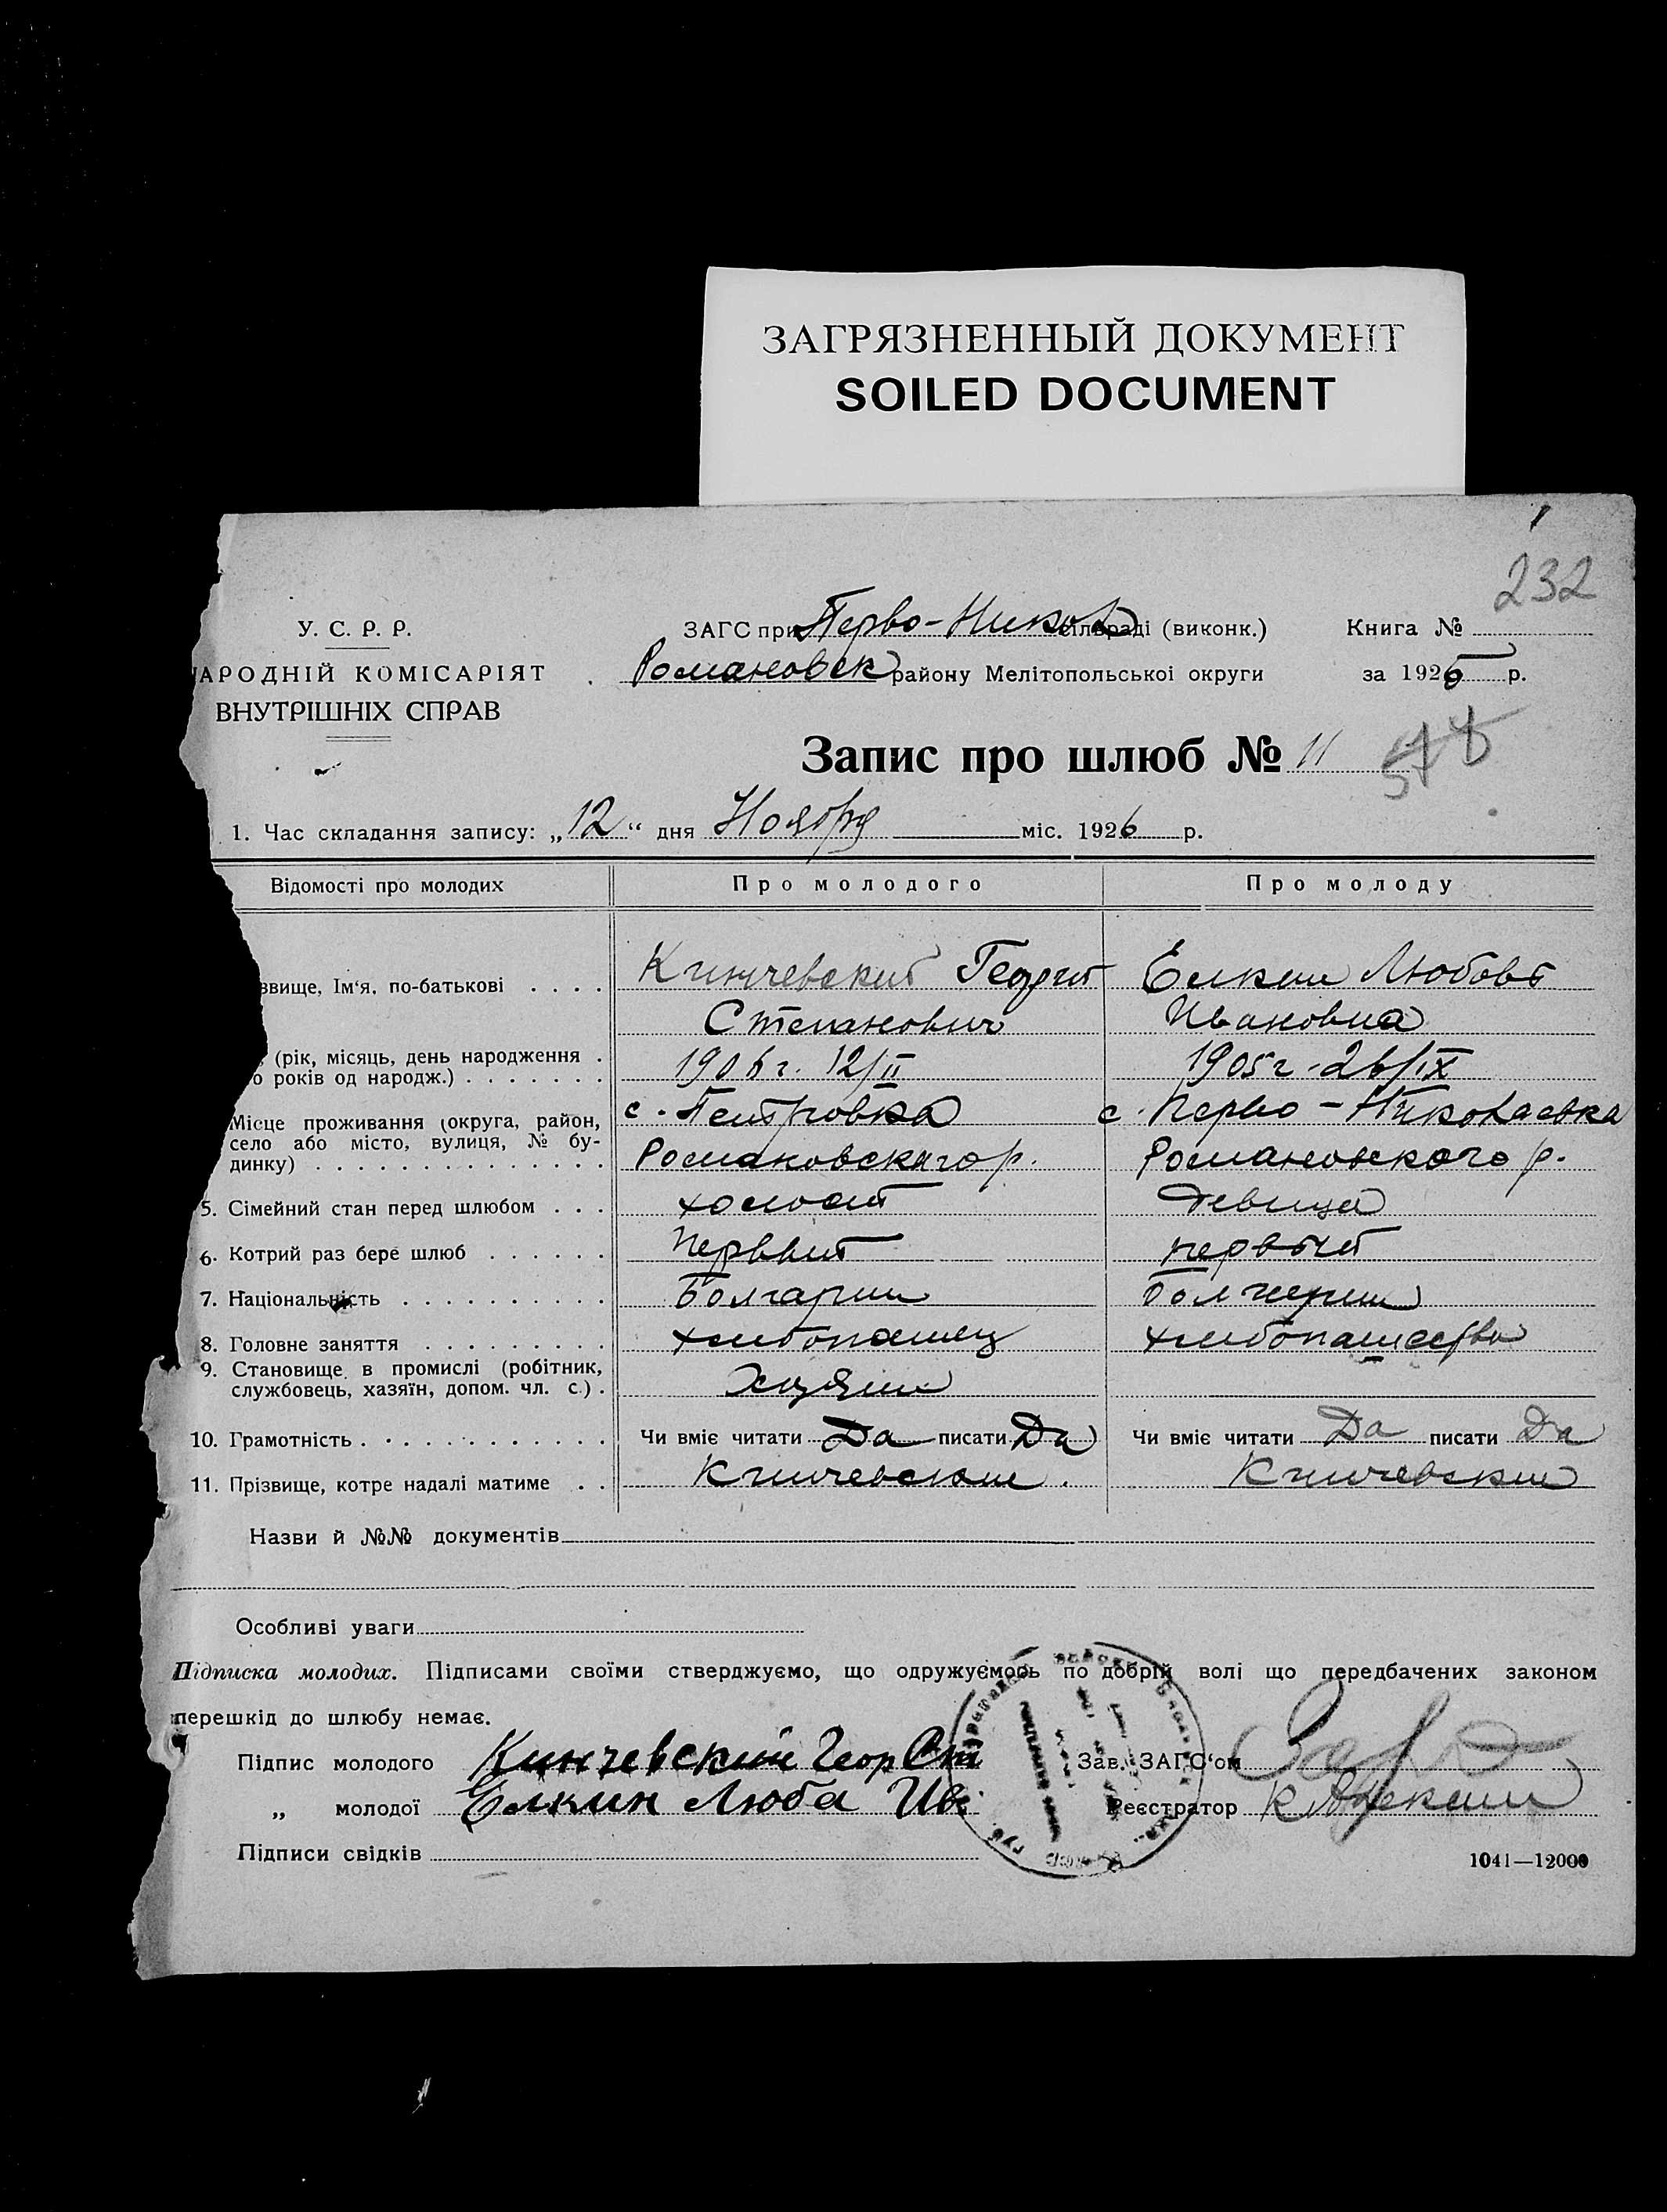 ЗАГРЯЗНЕННЫЙ ДОКУМЕНТ
SOILED DOCUMENT
232
У. С. Р. Р.
АРОДНІЙ КОМІСАРІЯТ
ВНУТРІШНІХ СПРАВ
ЗАГС при Перво-Никол сільраді (виконк.)
Романовск району Мелітопольської округи
Книга №
за 1926 р.
Запис про шлюб № 11
1. Час складання запису: „12“ дня Ноября міс. 1926 р.
Відомості про молодих Про молодого Про молоду
звище, Ім‘я, по-батькові . . . . Кинчевский Георгий Елкин Любовь
Степанович Ивановна
(рік, місяць, день народження .
о років од народж.) . . . . . . . 1906 г. 12/II 1905 г. 26/IX
Місце проживання (округа, район, с. Петровка с. Перво-Николаевка
село або місто, вулиця, № бу-
динку) . . . . . . . . . . . . . . Романовскаго р. Романовского р.
5. Сімейний стан перед шлюбом . . . холост девица
6. Котрий раз бере шлюб . . . . . . Первый первый
7. Національність . . . . . . . . . . Болгарин
8. Головне заняття . . . . . . . . . хлибопашец хлибопашество
9. Становище в промислі (робітник,
службовець, хазяїн, допом. чл. с.) .
10. Грамотність . . . . . . . . . . . Чи вміє читати Да писати Да Чи вміє читати Да писати Да
11. Прізвище, котре надалі матиме . . Кинчевский . Кинчевский
Назви й №№ документів
Особливі уваги
Підписка молодих. Підписами своїми стверджуємо, що одружуємось по добрій волі що передбачених законом
перешкід до шлюбу немає.
Підпис молодого Кинчевский Геор Ст
Зав. ЗАГС‘ом
„ молодої Елкин Люба Ив
Реєстратор
Підписи свідків
1041—12000